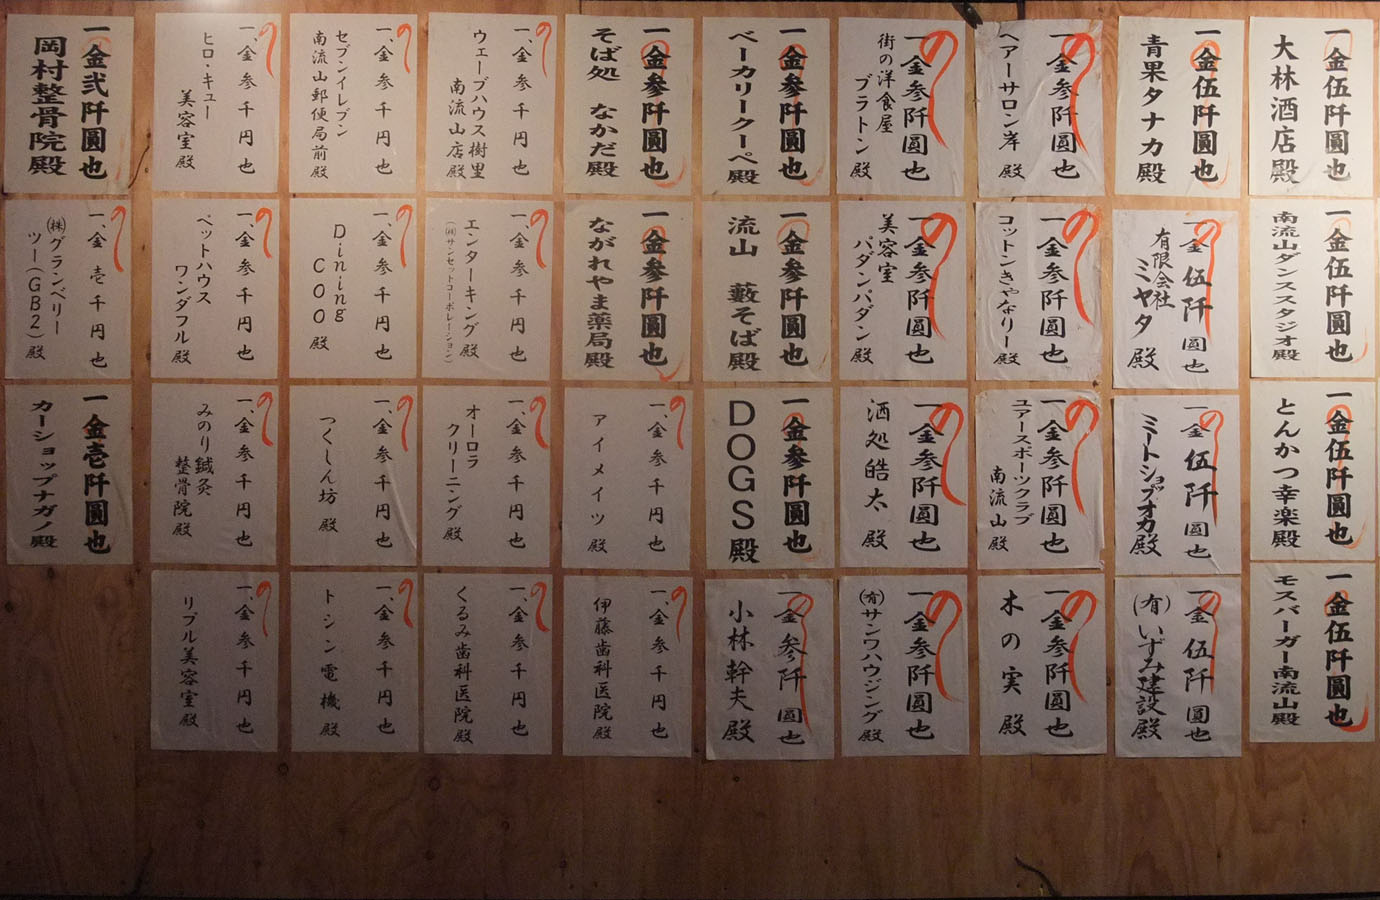 一金伍阡圓也
大林酒店殿
一金伍阡圓也
南流山ダンススタジオ殿
一金伍阡圓也
とんかつ幸楽殿
一金伍阡圓也
モスバーガー南流山殿
一金伍阡圓也
青果タナカ殿
一金伍阡圓也
有限会社
ミヤタ殿
一金伍阡圓也
ミートショップオカ殿
一金伍阡圓也
(有)いずみ建設殿
一金参阡圓也
ヘアーサロン岸殿
一金参阡圓也
コットンきゃなりー殿
一金参阡圓也
ユアースポーツクラブ
南流山殿
一金参阡圓也
木の実殿
一金参阡圓也
街の洋食屋
プラトン殿
一金参阡圓也
美容室
パダンパダン殿
一金参阡圓也
酒処皓太殿
一金参阡圓也
(有)サンワハウジング殿
一金参阡圓也
ベーカリークーペ殿
一金参阡圓也
流山 藪そば殿
一金参阡圓也
DOGS殿
一金参阡圓也
小林幹夫殿
一金参阡圓也
そば処 なかだ殿
一金参阡圓也
ながれやま薬局殿
一、金参千円也
アイメイツ殿
一、金参千円也
伊藤歯科医院殿
一、金参千円也
ウェーブハウス樹里
南流山店殿
一、金参千円也
エンターキング殿
(㈱サンセットコーポレーション)
一、金参千円也
オーロラ
クリーニング殿
一、金参千円也
くるみ歯科医院殿
一、金参千円也
セブンイレブン
南流山郵便局前殿
一、金参千円也
Dining
COO殿
一、金参千円也
つくしん坊殿
一、金参千円也
トシン電機殿
一、金参千円也
ヒロ・キュー
美容室殿
一、金参千円也
ペットハウス
ワンダフル殿
一、金参千円也
みのり鍼灸
整骨院殿
一、金参千円也
リプル美容室殿
一金弐阡圓也
岡村整骨院殿
一、金壱千円也
㈱グランベリー
ツー(GB2)殿
一金壱阡圓也
カーショップナガノ殿